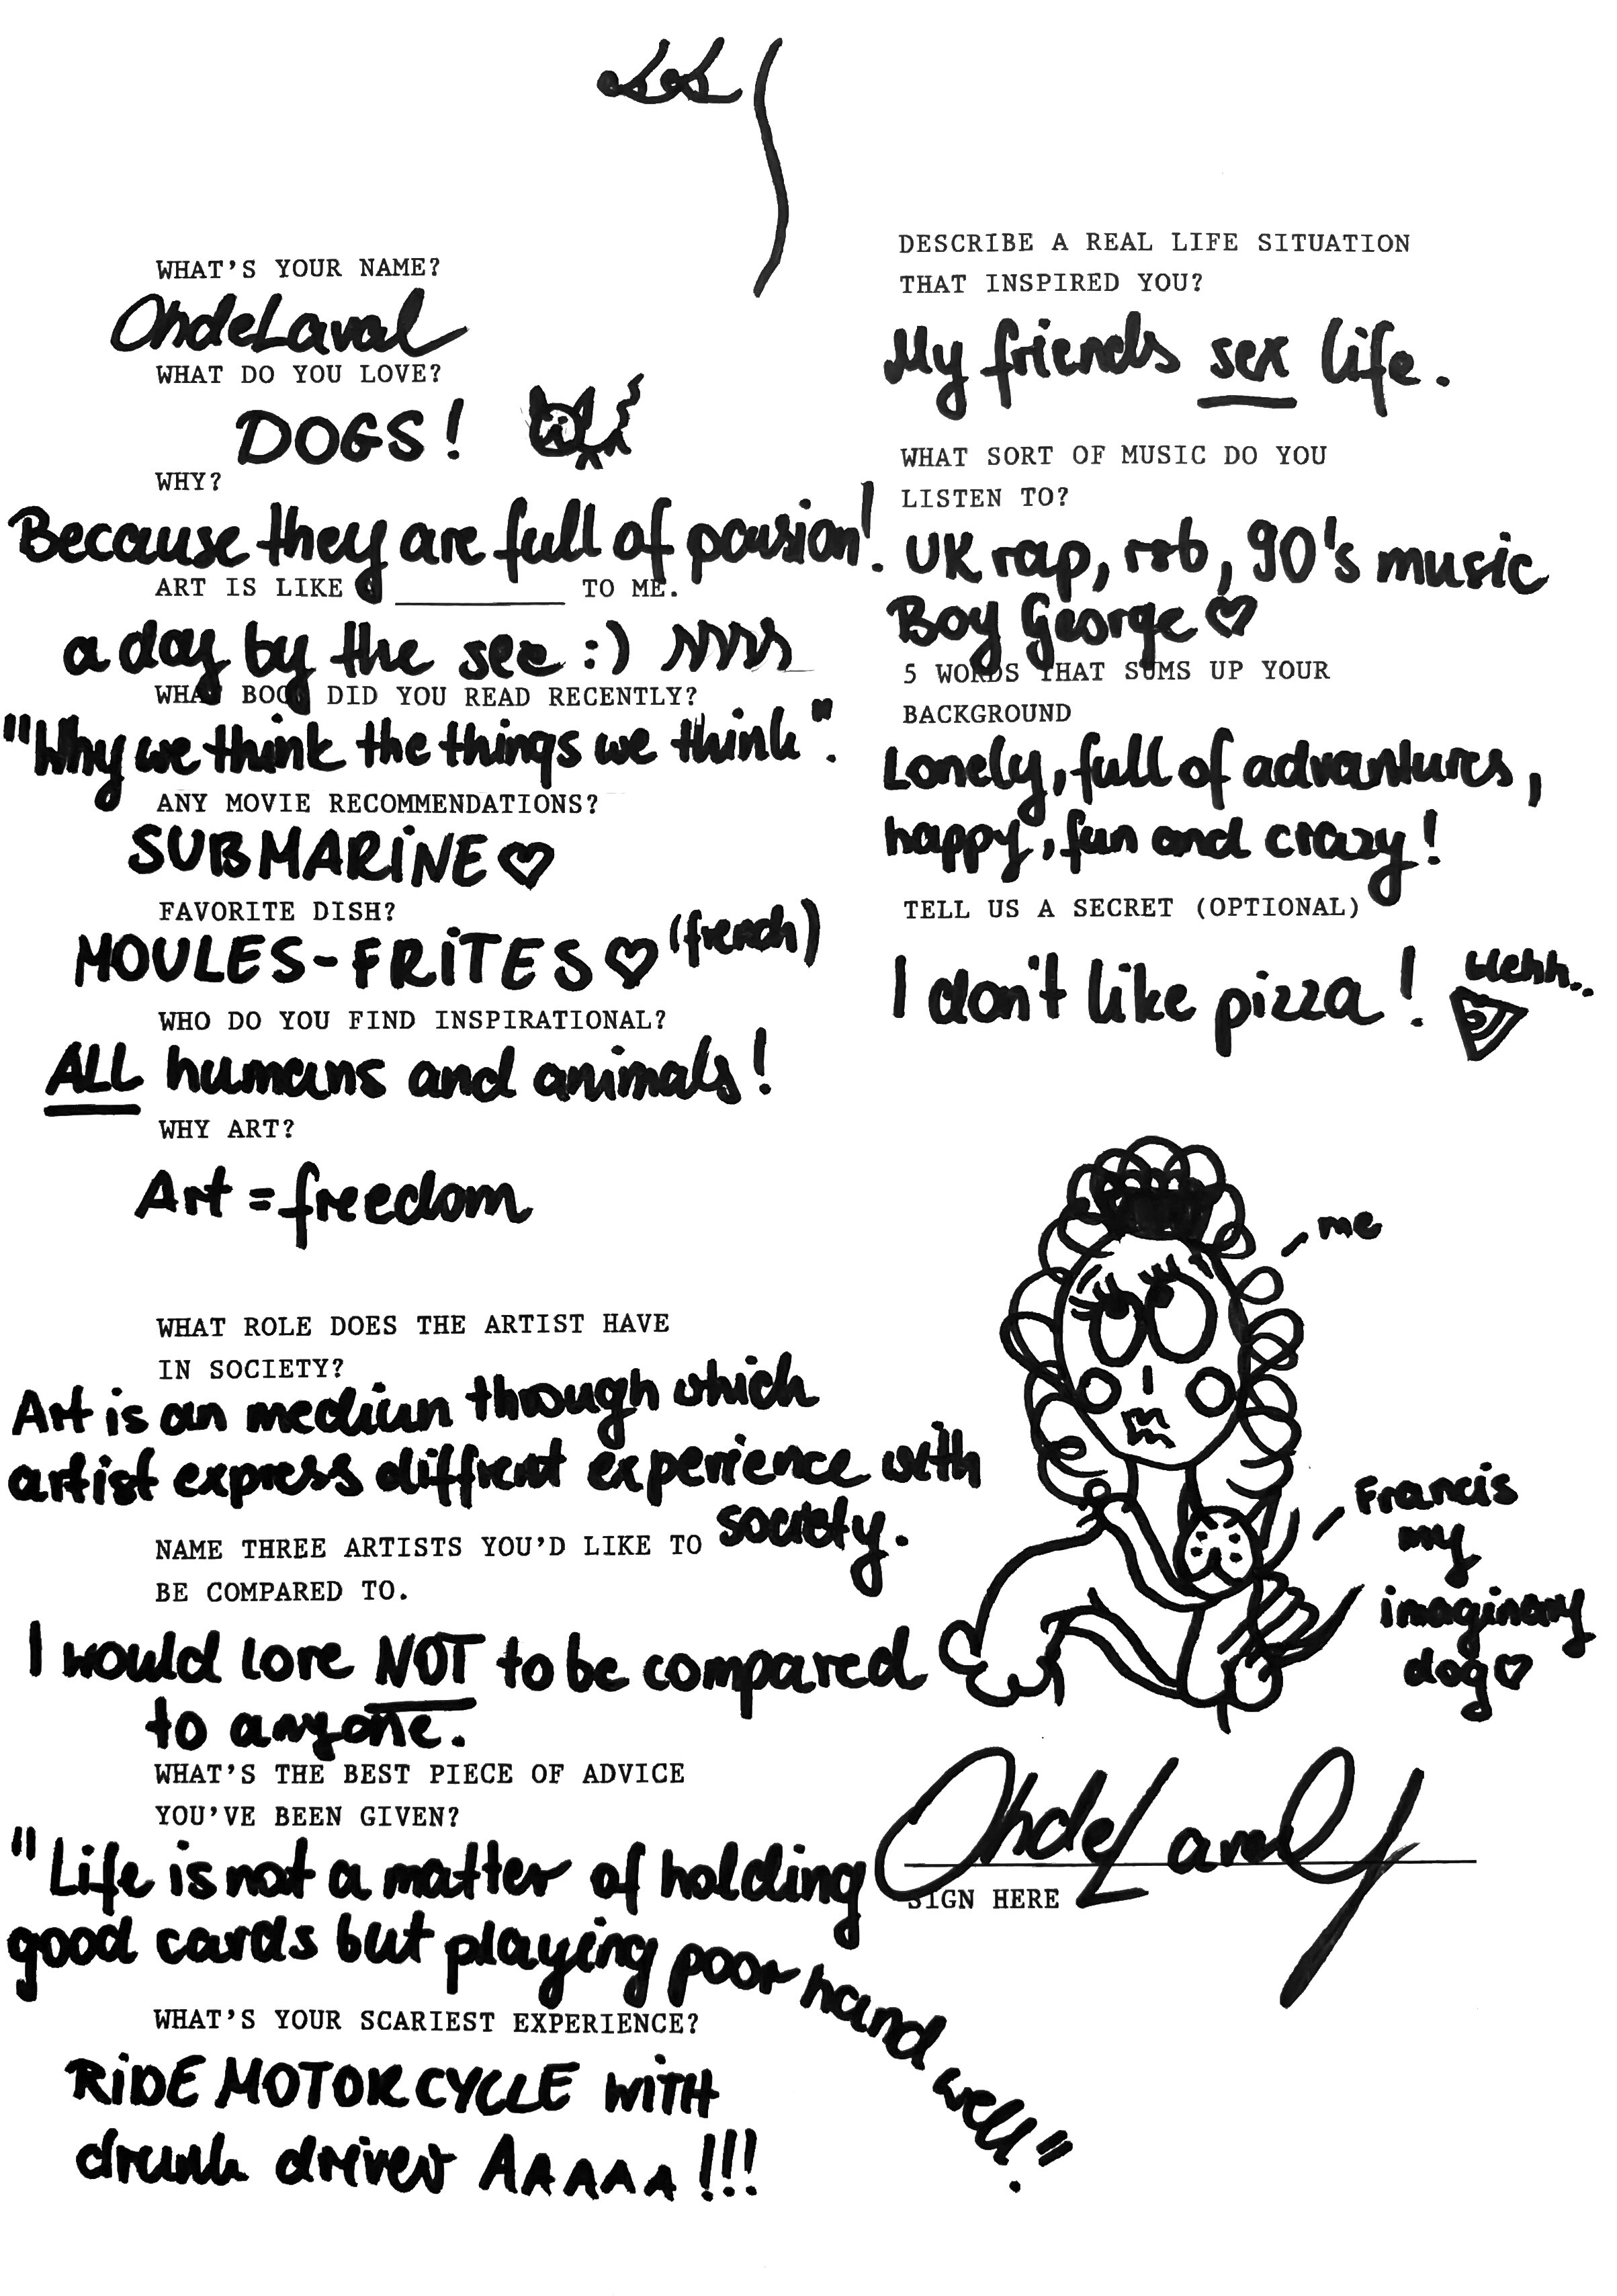 WHAT'S YOUR NAME?
OhdeLaval
WHAT DO YOU LOVE?
DOGS!
WHY?
Because they are full of passion!
ART IS LIKE ________ TO ME.
a day by the sea :)
WHAT BOOK DID YOU READ RECENTLY?
"Why we think the things we think".
ANY MOVIE RECOMMENDATIONS?
SUBMARiNE ♡
FAVORITE DISH?
MOULES-FRiTES ♡ (french)
WHO DO YOU FIND INSPIRATIONAL?
ALL humans and animals!
WHY ART?
Art = freedom
WHAT ROLE DOES THE ARTIST HAVE
IN SOCIETY?
Art is an medium through which
artist express diffrent experience with
society.
NAME THREE ARTISTS YOU'D LIKE TO
BE COMPARED TO.
I would love NOT to be compared
to anyone.
WHAT'S THE BEST PIECE OF ADVICE
YOU'VE BEEN GIVEN?
"Life is not a matter of holding
good cards but playing poor hand well".
WHAT'S YOUR SCARIEST EXPERIENCE?
RiDE MOTORCYCLE WiTH
drunk driver AAAAA!!!
DESCRIBE A REAL LIFE SITUATION
THAT INSPIRED YOU?
My friends sex life.
WHAT SORT OF MUSIC DO YOU
LISTEN TO?
UK rap, r&b, 90's music
Boy George ♡
5 WORDS THAT SUMS UP YOUR
BACKGROUND
Lonely, full of advantures,
happy, fun and crazy!
TELL US A SECRET (OPTIONAL)
I don't like pizza!
me
Francis
my
imaginary
dog ♡
OhdeLaval
SIGN HERE